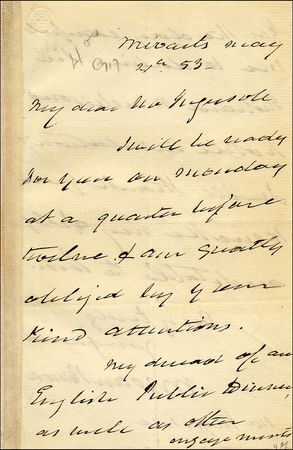 Mivart's May
21st 53
My dear Mr Ingersoll
I will be ready
for you on Monday
at a quarter before
twelve & am greatly
obliged by your
kind attentions.
My dread of an
English Public Dinner,
as well as other
engagements